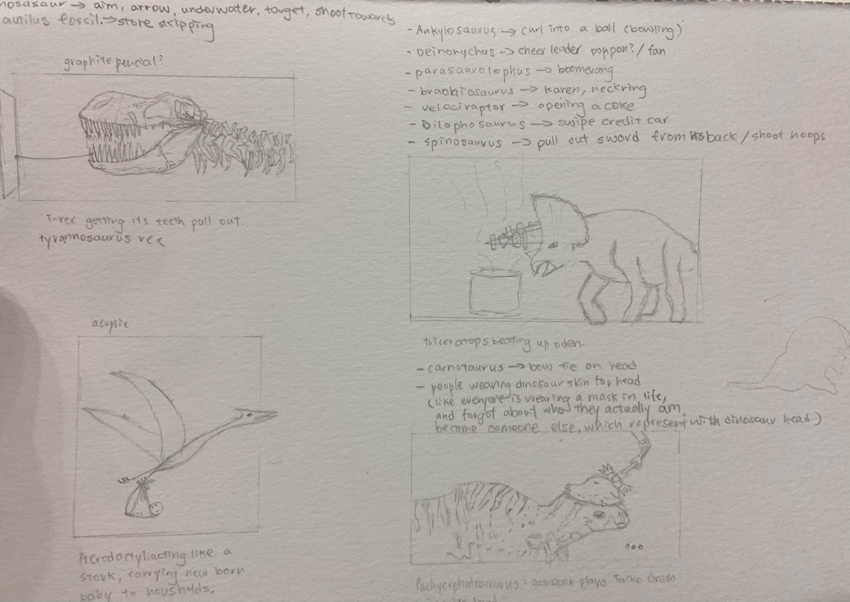 mosasaur → aim, arrow, underwater, target, shoot towards
autilus fossil.→ stone skipping
graphite pencial?
T-rex getting its teeth pull out.
tyrannosaurus rex
acrylic
Pterodactyl acting like a
stork, carrying new born
baby to housholds,
- Ankylosaurus → curl into a ball (bowling)
- Deinonychus → cheer leader pompon? / fan
- parasaurolophus → boomerang
- brachiosaurus → karen, neckring
- velociraptor → opening a coke
- Dilophosaurus → swipe credit car
- Spinosaurus → pull out sword from its back / shoot hoops
triceratops heating up oden.
- carnotaurus → bow tie on head
- people wearing dinosaur skin for head
(like everyone is wearing a mask in life,
and forgot about who they actually am,
become someone else, which represent with dinosaur head)
Pachycephalosaurus: someone plays Taiko drum